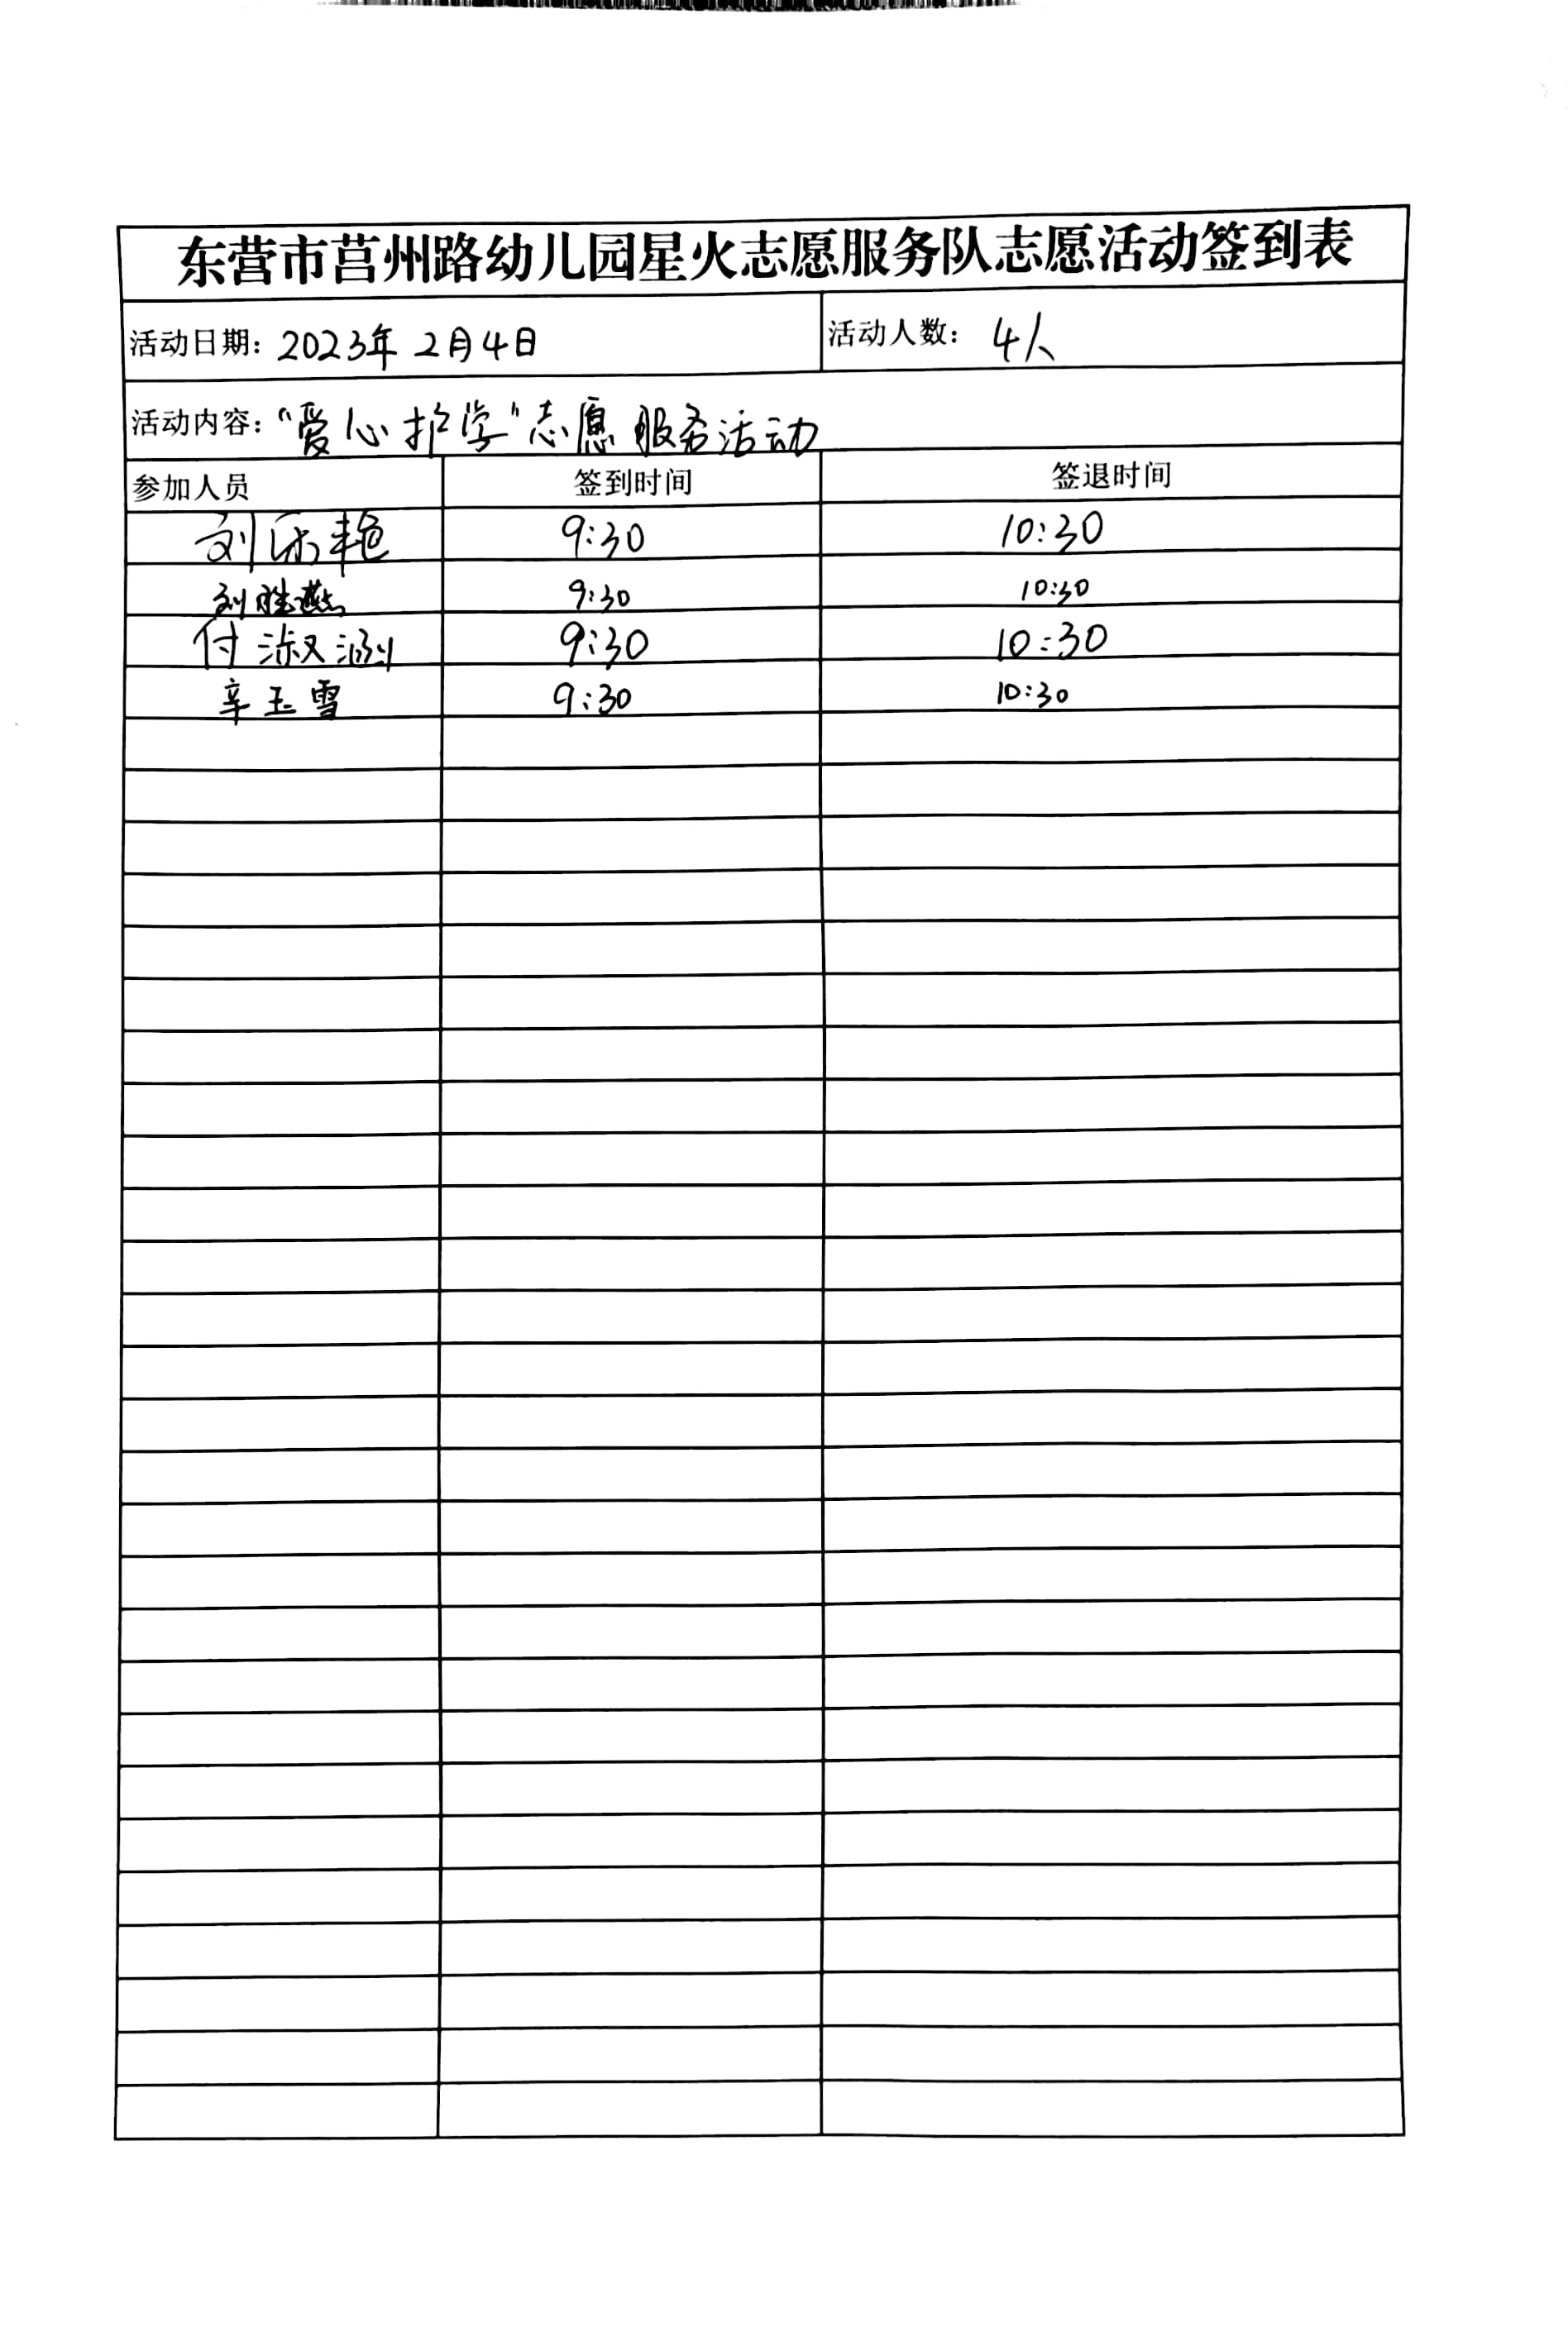 东营市莒州路幼儿园星火志愿服务队志愿活动签到表
活动日期：2023年2月4日 活动人数：4人
活动内容：“爱心护学”志愿服务活动
参加人员 签到时间 签退时间
刘 艳 9:30 10:30
刘胜燕 9:30 10:30
付淑涵 9:30 10:30
辛玉雪 9:30 10:30